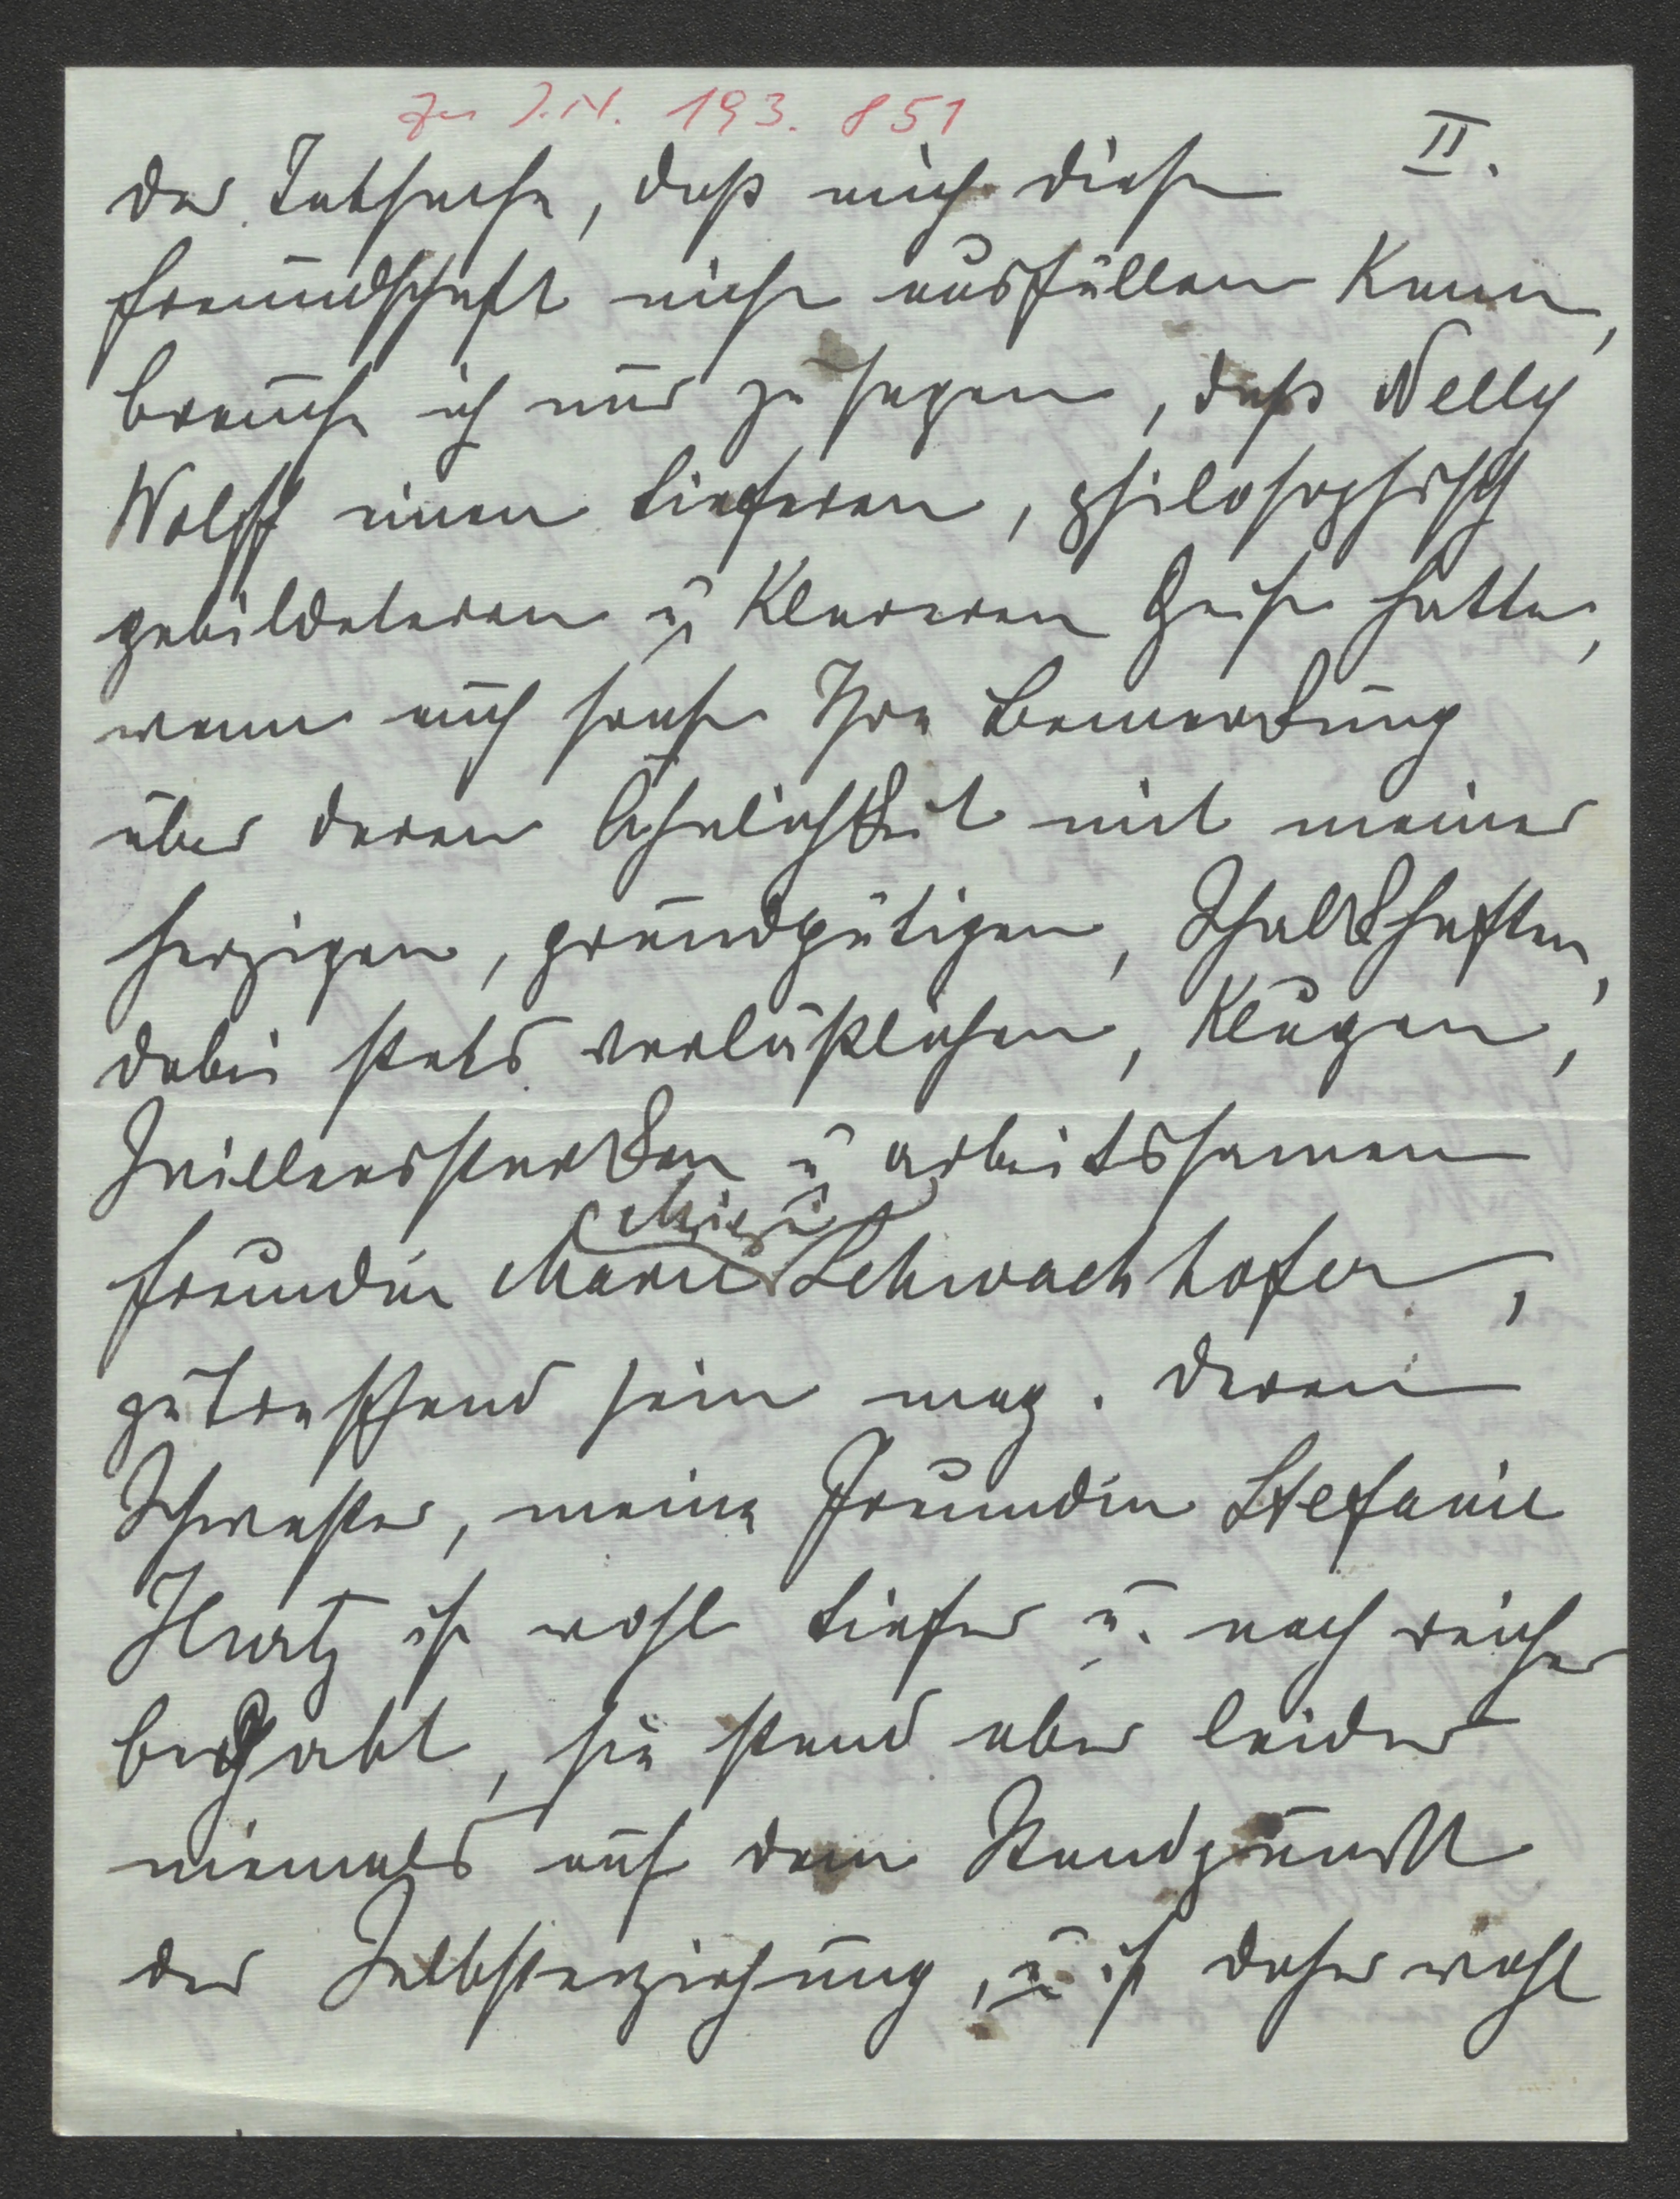 Zu J.N. 193.851
II.
der Tatsache, daß mich diese
Freundschaft nicht ausfüllen kann,
brauche ich nur zu sagen, daß Nelly
Wolff einen tieferen, philosophisch
gebildeteren u. klareren Geist hatte,
wenn auch sonst Ihre Bemerkung
über deren Ähnlichkeit mit meiner
herzigen, grundgütigen, schalkhaften,
dabei stets verläßlichen, klugen,
willensstarken u arbeitssamen
(Mizi)
Freundin Marie Schwachhofer,
zutreffend sein mag. Deren
Schwester, meine Freundin Stefanie
Hurtz ist wohl tiefer u. noch reicher
begabt, sie stand aber leider
niemals auf dem Standpunkt
der Selbsterziehung, u ist daher wohl